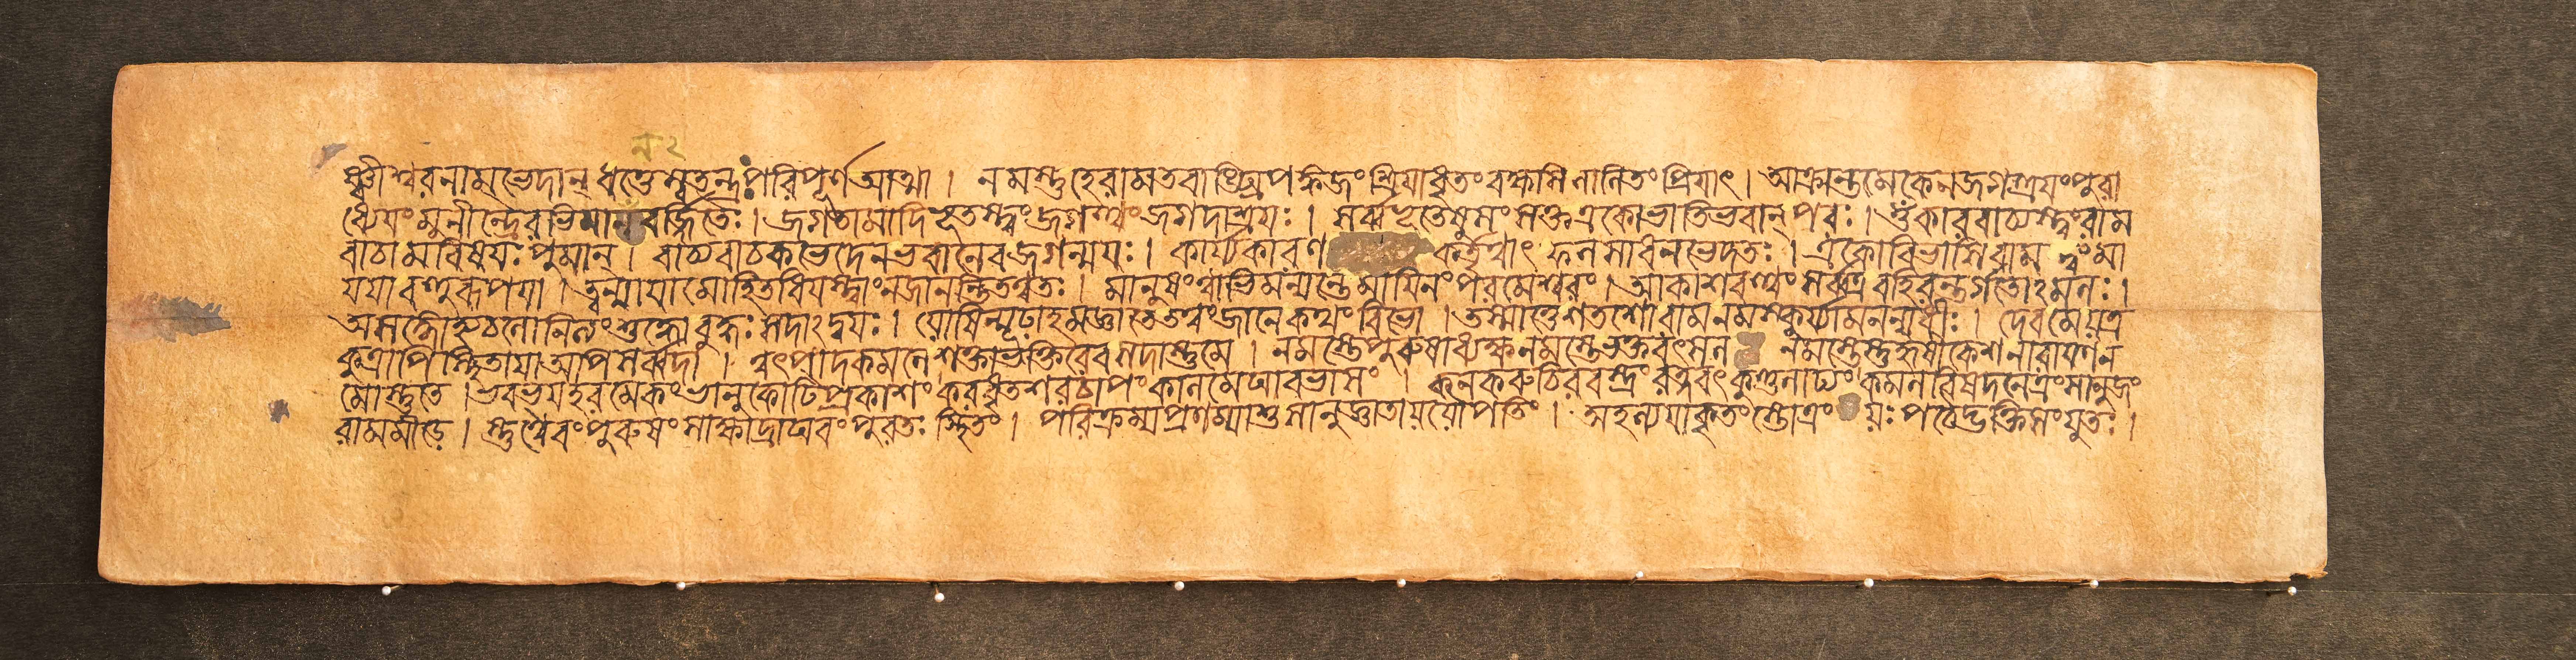 ঞ্চীশ্বরনামভেদান্ ধত্তে স্বতন্ত্রঃ পরিপূর্ণ আত্মা । নমস্তুহেরামতবাঙ্ঘ্রিপঙ্কজং শ্রিয়াধৃতং বক্ষসিলালিতং প্রিয়াৎ । আক্রান্তমেকেনজগত্ত্রয়ং পুরা
ধ্যেয়ং মুনীন্দ্রৈরভিমানবর্জিতৈঃ । জগতামাদিভূতস্ত্বং জগত্ত্বং জগদাশ্রয়ঃ । সর্ব্বভূতেষুসংসক্ত একোভাতিভবান্ পরঃ । ওঁকারবাচ্যস্ত্বং রাম
বাচামবিষয়ঃ পুমান্ । বাচ্যবাচকভেদেনভবানেবজগন্ময়ঃ । কার্য্যকারণ কর্তৃত্বাৎ ফলসাধনভেদতঃ । একোবিভাসিরাম ত্বং মা
যয়াবহুরূপয়া । ত্বন্মায়ামোহিতধিয়স্ত্বাং নজানন্তিতত্ত্বতঃ । মানুষংত্বাভিমন্যন্তে মায়িনং পরমেশ্বরং । আকাশবত্ত্বং সর্ব্বত্র বহিরন্তর্গতোঽমলঃ ।
অসঙ্গোহ্যচলোনিত্যং শুদ্ধোবুদ্ধঃ সদাঽদ্বয়ঃ । যোষিন্মূঢাহমজ্ঞাতেতত্ত্বং জানেকথং বিভো । তস্মাত্তেশতশোরামনমস্কুর্য্যামনন্যধীঃ । দেবমেযত্র
কুত্রাপিস্থিতায়া আপিসর্ব্বদা । ত্বৎপাদকমলেশক্তাভক্তিরেবসদাস্তুমে । নমস্তেপুরুষাধ্যক্ষনমস্তেভক্তবৎসল নমস্তেস্তুহৃষীকেশনারায়ণন
মোস্তুতে । ভবভয়হরমেকং ভানুকোটিপ্রকাশং করধৃতশরচাপং কালমেঘাবভাসং । কনকরুচিরবস্ত্রং রত্নবৎকুণ্ডলাঢ্যং কমলবিষদনেত্রং সানুজং
রামমীডে । স্তুত্বৈবংপুরুষং সাক্ষাদ্রাঘবং পুরতঃ স্থিতং । পরিক্রম্যপ্রণম্যাশুসানুজ্ঞাতাযযৌপতিং । অহল্যয়াকৃতং স্তোত্রং যঃ পঠেদ্ভক্তিসংযুতঃ ।
ন ২